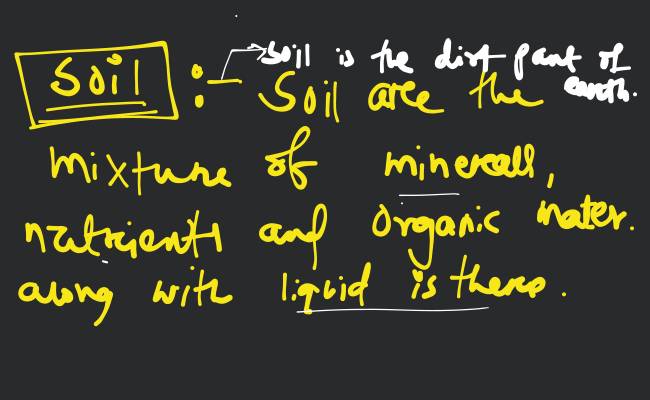 soil is the dirt part of
earth.
Soil :- Soil are the
mixture of minerall,
nutrients and organic mater.
along with liquid is there.